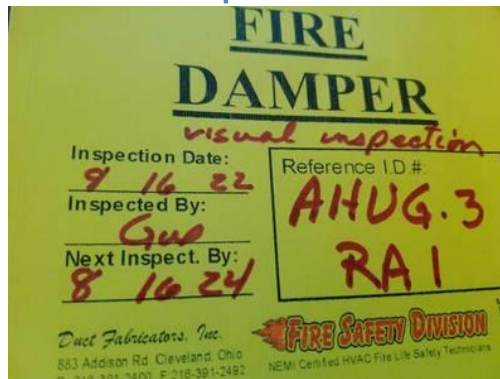 FIRE
DAMPER
visual inspection
Inspection Date:
9 16 22
Inspected By:
Gus
Next Inspect. By:
8 16 24
Reference I.D.#:
AHUG.3
RA1
Duct Fabricators, Inc.
883 Addison Rd. Cleveland, Ohio
P. 216-391-2400 F. 216-391-2492
FIRE SAFETY DIVISION
NEMI Certified HVAC Fire Life Safety Technicians